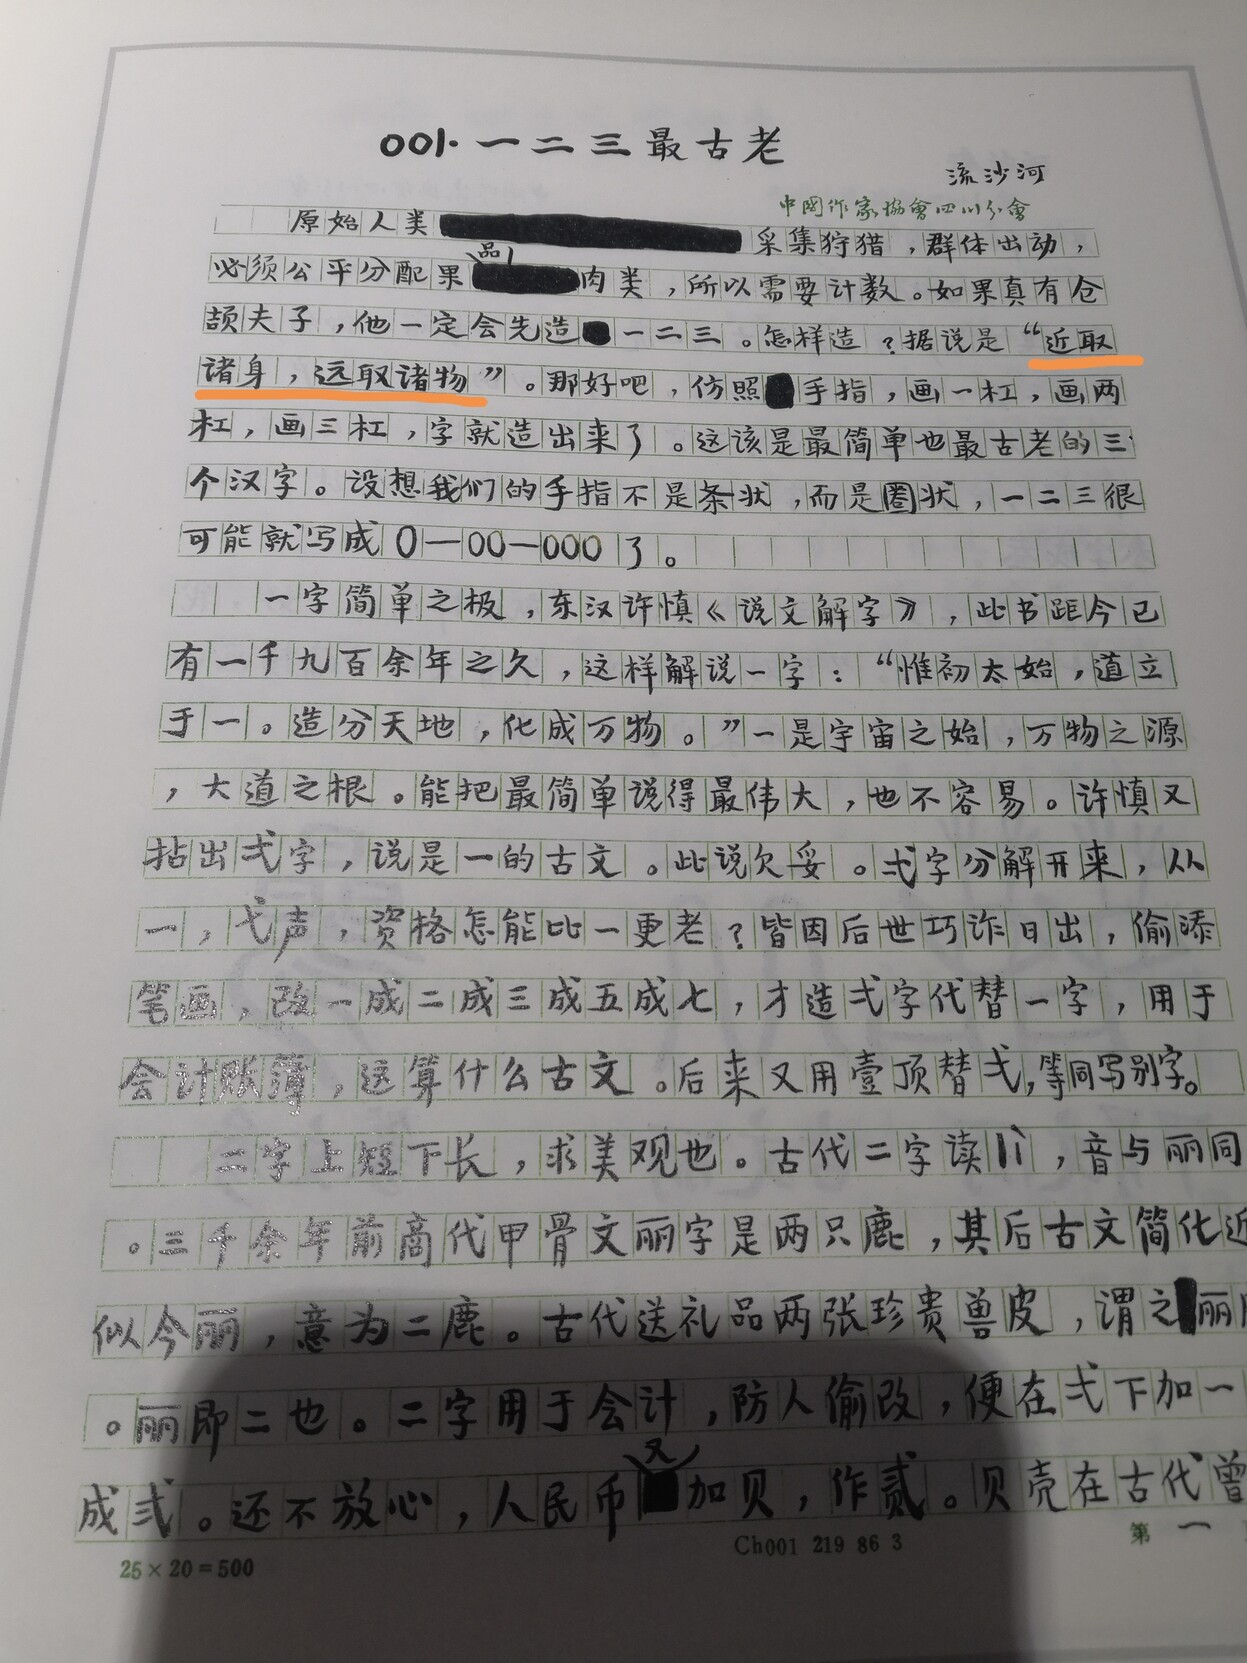 001·一二三最古老
流沙河
中国作家协會四川分會
原始人类采集狩猎，群体出动，
必须公平分配果品肉类，所以需要计数。如果真有仓
颉夫子，他一定会先造一二三。怎样造？据说是“近取
诸身，远取诸物”。那好吧，仿照手指，画一杠，画两
杠，画三杠，字就造出来了。这该是最简单也最古老的三
个汉字。设想我们的手指不是条状，而是圈状，一二三很
可能就写成0—00—000了。
一字简单之极，东汉许慎《说文解字》，此书距今已
有一千九百余年之久，这样解说一字：“惟初太始，道立
于一。造分天地，化成万物。”一是宇宙之始，万物之源
，大道之根。能把最简单说得最伟大，也不容易。许慎又
拈出弌字，说是一的古文。此说欠妥。弌字分解开来，从
一，弋声，资格怎能比一更老？皆因后世巧诈日出，偷添
笔画，改一成二成三成五成七，才造弌字代替一字，用于
会计账簿，这算什么古文。后来又用壹顶替弌，等同写别字。
二字上短下长，求美观也。古代二字读lì，音与丽同
。三千余年前商代甲骨文丽字是两只鹿，其后古文简化近
似今丽，意为二鹿。古代送礼品两张珍贵兽皮，谓之丽
。丽即二也。二字用于会计，防人偷改，便在弌下加一
成弍。还不放心，人民币又加贝，作贰。贝壳在古代曾
25×20=500
Ch001 219 86 3
第一